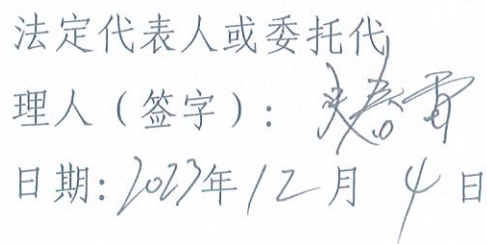 法定代表人或委托代
理人（签字）：
日期：2023年12月4日